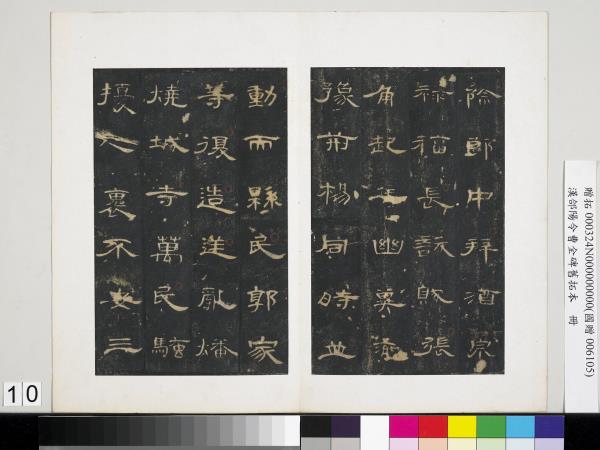 除郎中拜酒泉
祿福長訞賊張
角起兵幽冀兗
豫荊楊同時並
動而縣民郭家
等復造逆亂燔
燒城寺萬民騷
擾人裏不安三
贈拓 000324N000000000(國贈 006105)
漢郃陽令曹全碑舊拓本 冊
10